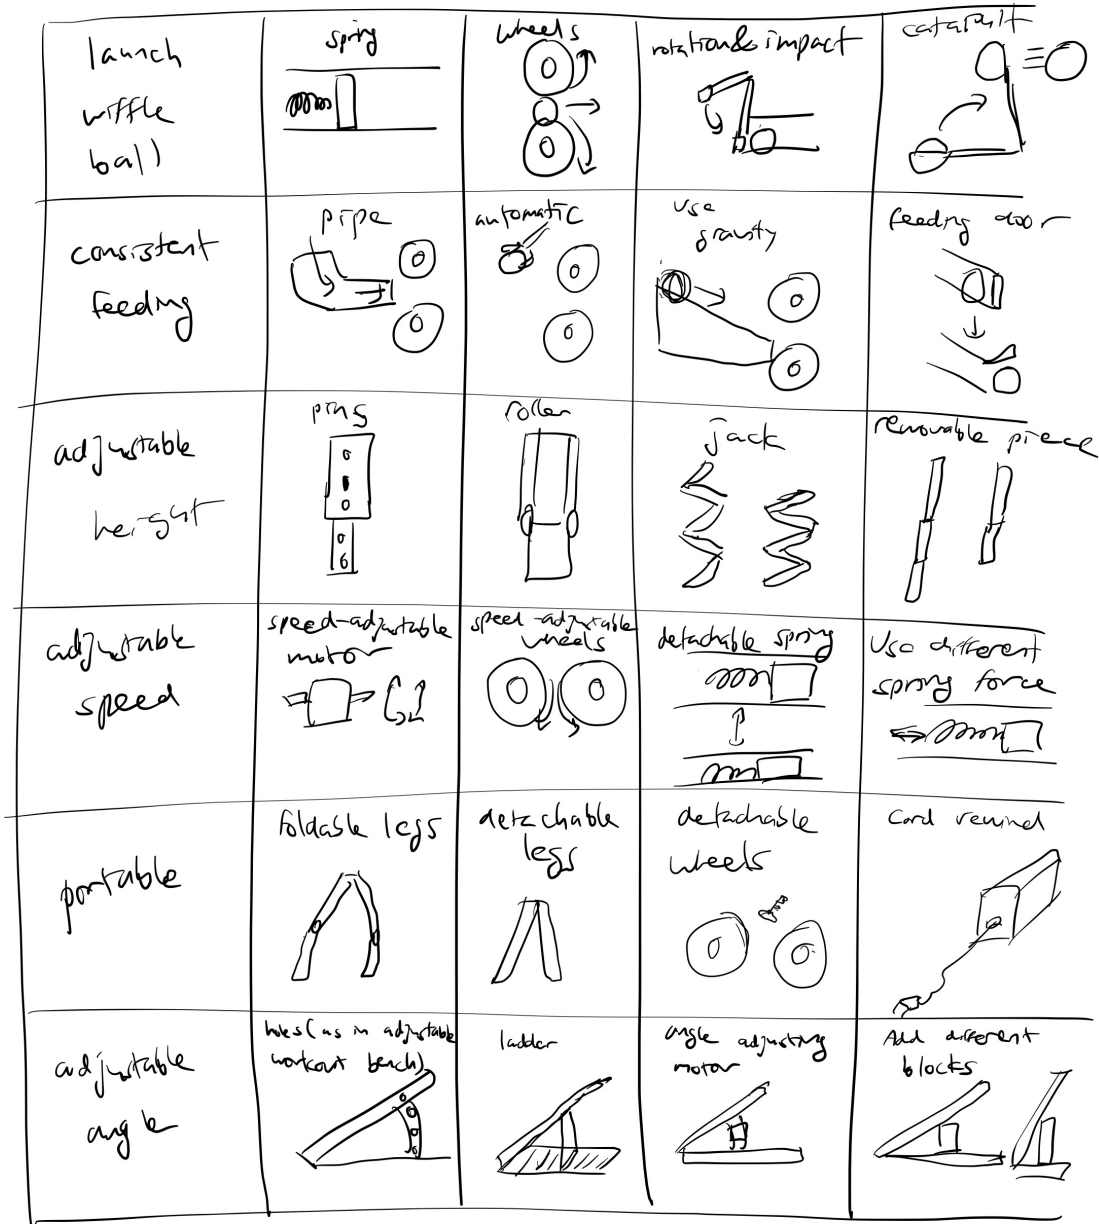 launch
wiffle
ball
spring
wheels
rotation & impact
catapult
consistent
feeding
pipe
automatic
use
gravity
feeding door
adjustable
height
pins
roller
jack
removable piece
adjustable
speed
speed-adjustable
motor
speed-adjustable
wheels
detachable spring
Use different
spring force
portable
foldable legs
detachable
legs
detachable
wheels
Cord rewind
adjustable
angle
holes (as in adjustable
workout bench)
ladder
angle adjusting
motor
Add different
blocks